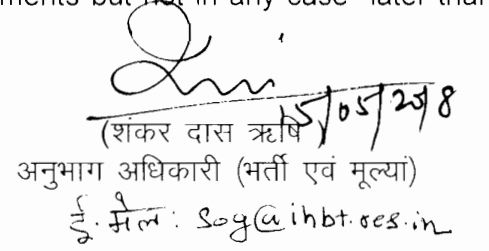 ments but not in any case later than
15/05/2018
(शंकर दास ऋषि)
अनुभाग अधिकारी (भर्ती एवं मूल्यां)
ई.मेल: sog@ihbt.res.in